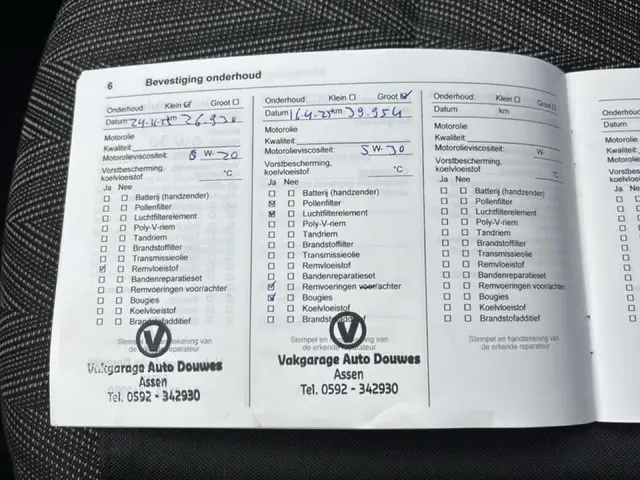 6 Bevestiging onderhoud
Onderhoud: Klein ☑ Groot ☐
Datum km 26.930
Motorolie
Kwaliteit:
Motorolieviscositeit: W- 20
Vorstbescherming,
koelvloeistof °C
Ja Nee
☐ ☐ Batterij (handzender)
☐ ☐ Pollenfilter
☐ ☐ Luchtfilterelement
☐ ☐ Poly-V-riem
☐ ☐ Tandriem
☐ ☐ Brandstoffilter
☐ ☐ Transmissieolie
☑ ☐ Remvloeistof
☐ ☐ Bandenreparatieset
☐ ☐ Remvoeringen voor/achter
☐ ☐ Bougies
☐ ☐ Koelvloeistof
☐ ☐ Brandstofadditief
Stempel en handtekening van
de erkende reparateur
Vakgarage Auto Douwes
Assen
Tel. 0592 - 342930
Onderhoud: Klein ☐ Groot ☑
Datum 16-4-25 km 39.954
Motorolie
Kwaliteit:
Motorolieviscositeit: 5 W- 30
Vorstbescherming,
koelvloeistof °C
Ja Nee
☐ ☐ Batterij (handzender)
☑ ☐ Pollenfilter
☑ ☐ Luchtfilterelement
☐ ☐ Poly-V-riem
☐ ☐ Tandriem
☐ ☐ Brandstoffilter
☐ ☐ Transmissieolie
☐ ☐ Remvloeistof
☐ ☐ Bandenreparatieset
☑ ☐ Remvoeringen voor/achter
☑ ☐ Bougies
☐ ☐ Koelvloeistof
☐ ☐ Brandstofadditief
V
Stempel en handtekening van
de erkende reparateur
Vakgarage Auto Douwes
Assen
Tel. 0592 - 342930
Onderhoud: Klein ☐ Groot ☐
Datum km
Motorolie
Kwaliteit:
Motorolieviscositeit: W-
Vorstbescherming,
koelvloeistof °C
Ja Nee
☐ ☐ Batterij (handzender)
☐ ☐ Pollenfilter
☐ ☐ Luchtfilterelement
☐ ☐ Poly-V-riem
☐ ☐ Tandriem
☐ ☐ Brandstoffilter
☐ ☐ Transmissieolie
☐ ☐ Remvloeistof
☐ ☐ Bandenreparatieset
☐ ☐ Remvoeringen voor/achter
☐ ☐ Bougies
☐ ☐ Koelvloeistof
☐ ☐ Brandstofadditief
Stempel en handtekening van
de erkende reparateur